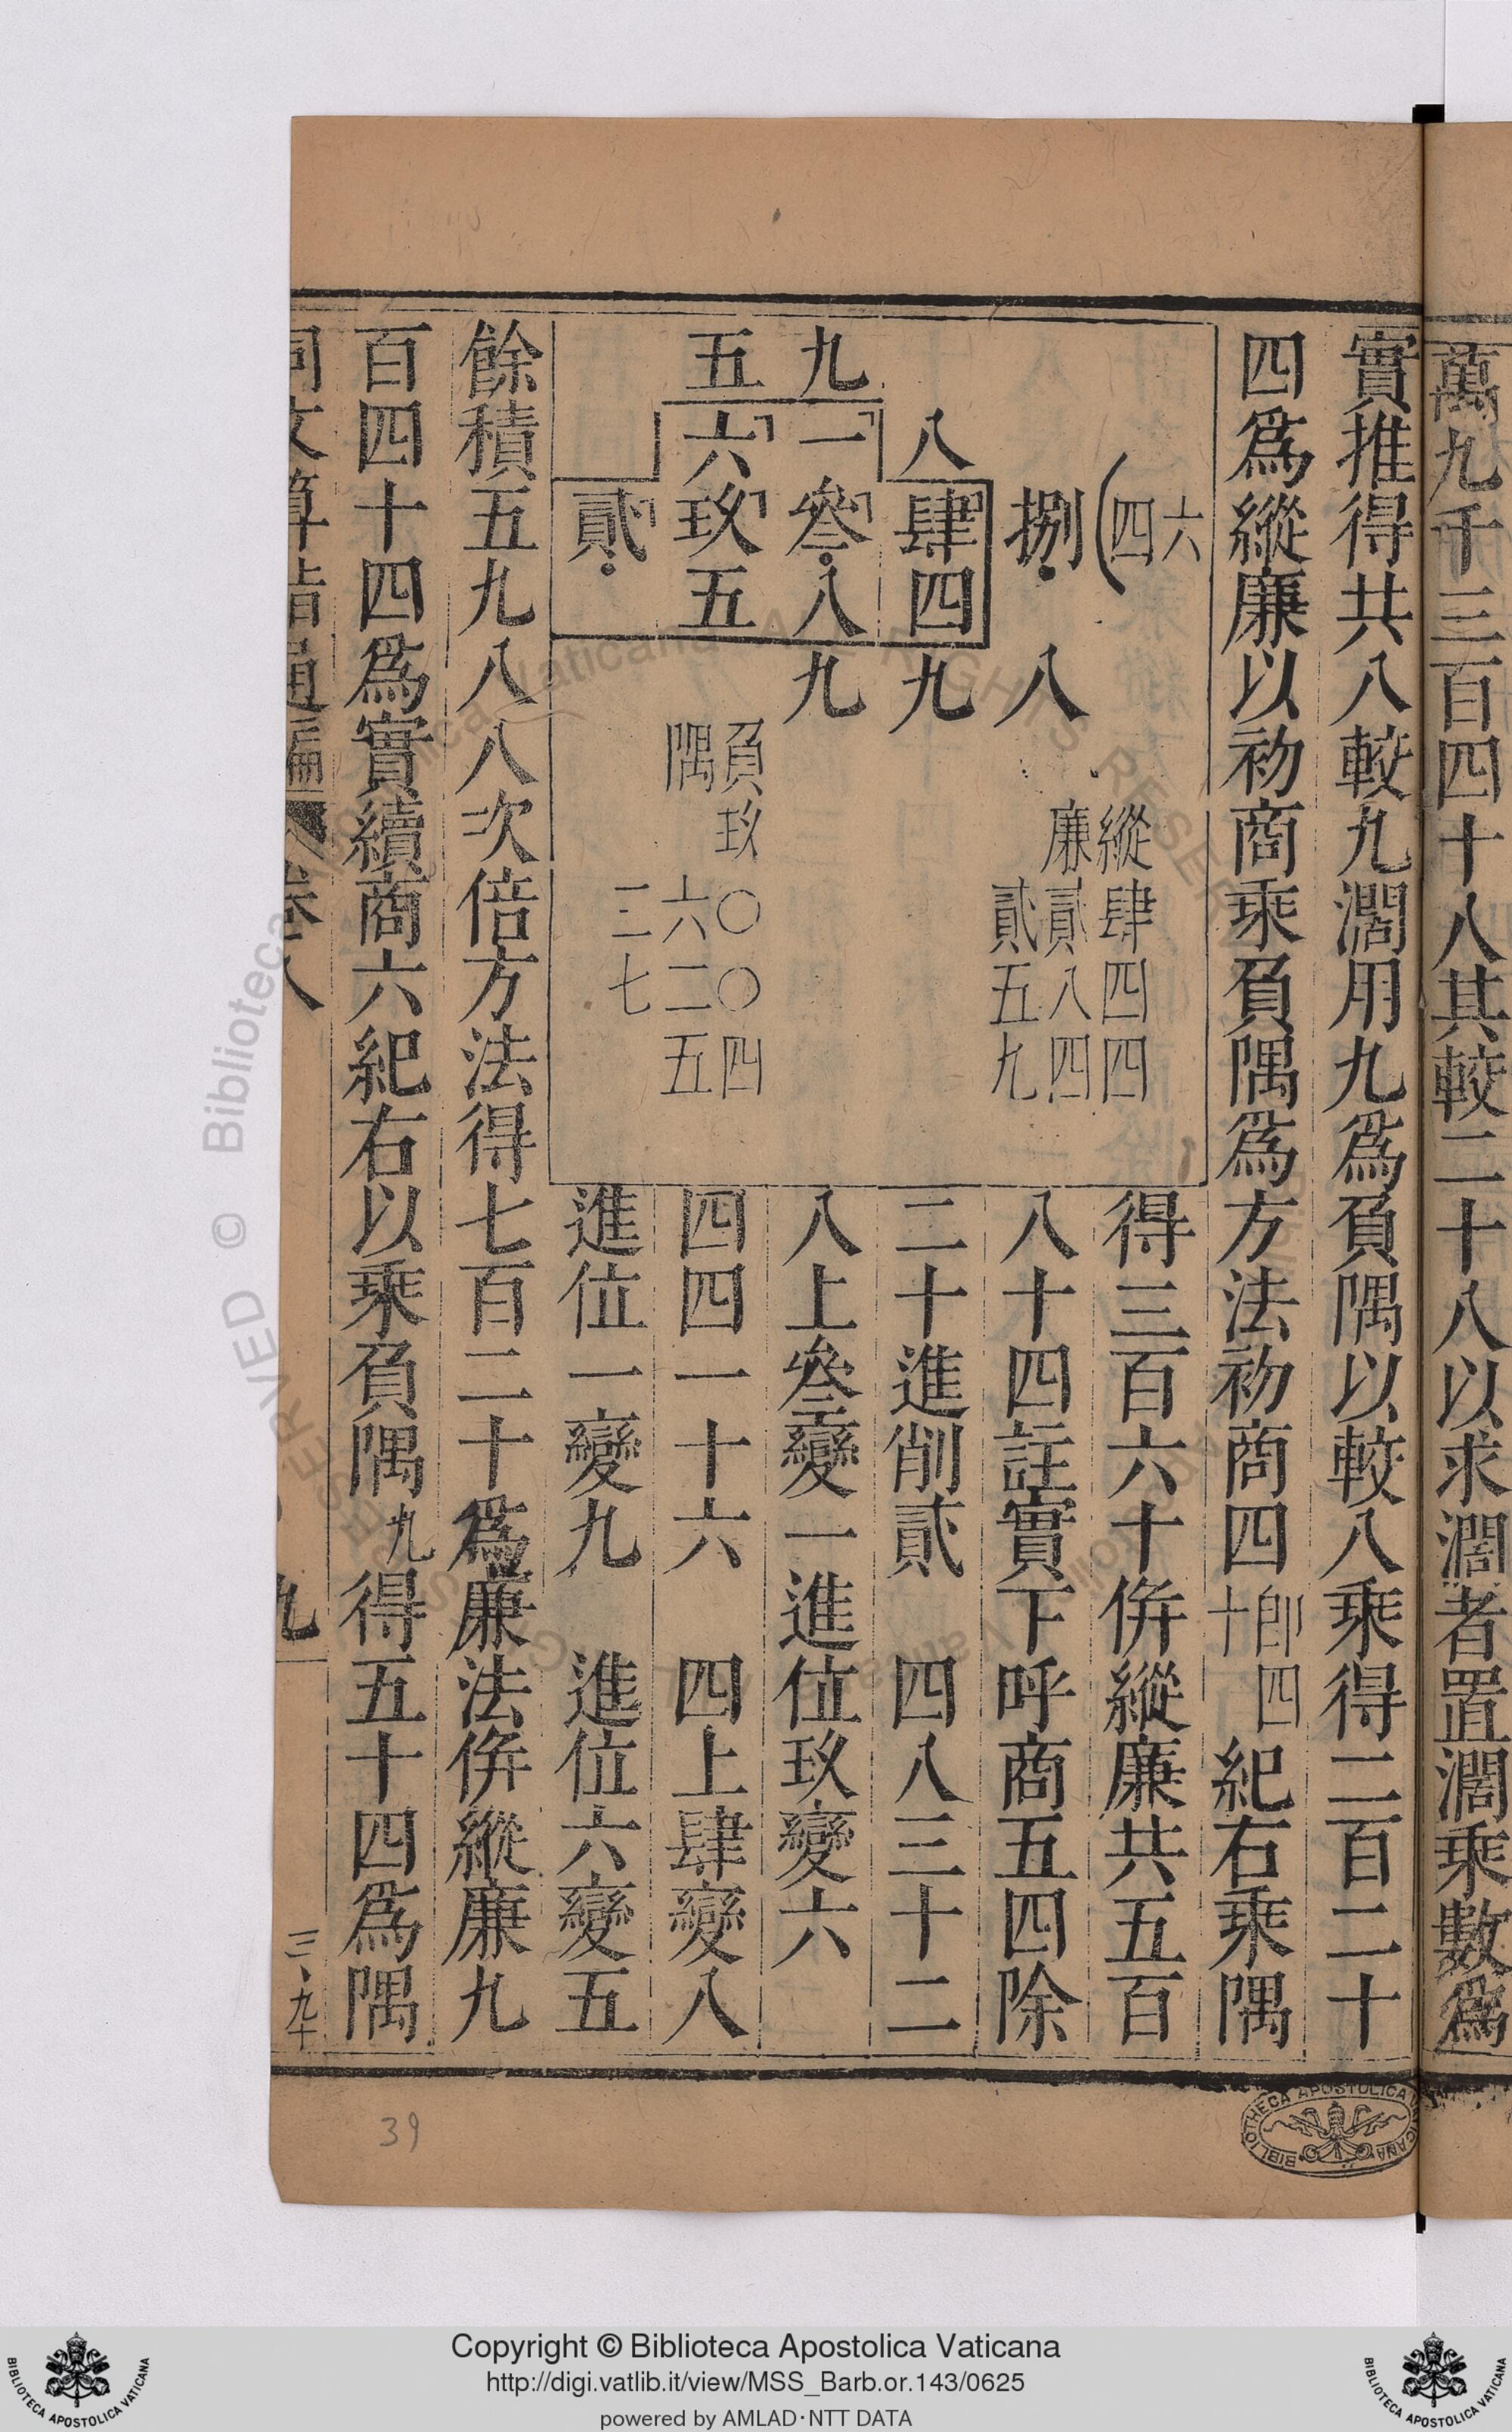 萬九千三百四十八其較二十八以求濶者置濶乘數爲
實推得共八較九濶用九爲負隅以較八乘得二百二十
四爲縱廉以初商乘負隅爲方法初商四卽四十紀右乘隅
得三百六十併縱廉共五百
八十四註實下呼商五四除
二十進削貳　四八三十二
八上叄變一進位玖變六
四四一十六　四上肆變八
進位一變九　進位六變五
六
四
捌八
八肆四九
九一叄八九
五六玖五
貳
縱肆四四
廉貳八四
貳五九
負玖〇〇四
隅六二五
三七
餘積五九八八次倍方法得七百二十爲廉法併縱廉九
百四十四爲實續商六紀右以乘負隅九得五十四爲隅
同文算指通編 卷八 九
三、九十
39
BIBLIOTHECA APOSTOLICA VATICANA
Copyright © Biblioteca Apostolica Vaticana
http://digi.vatlib.it/view/MSS_Barb.or.143/0625
powered by AMLAD·NTT DATA
BIBLIOTECA APOSTOLICA VATICANA
BIBLIOTECA APOSTOLICA VATICANA